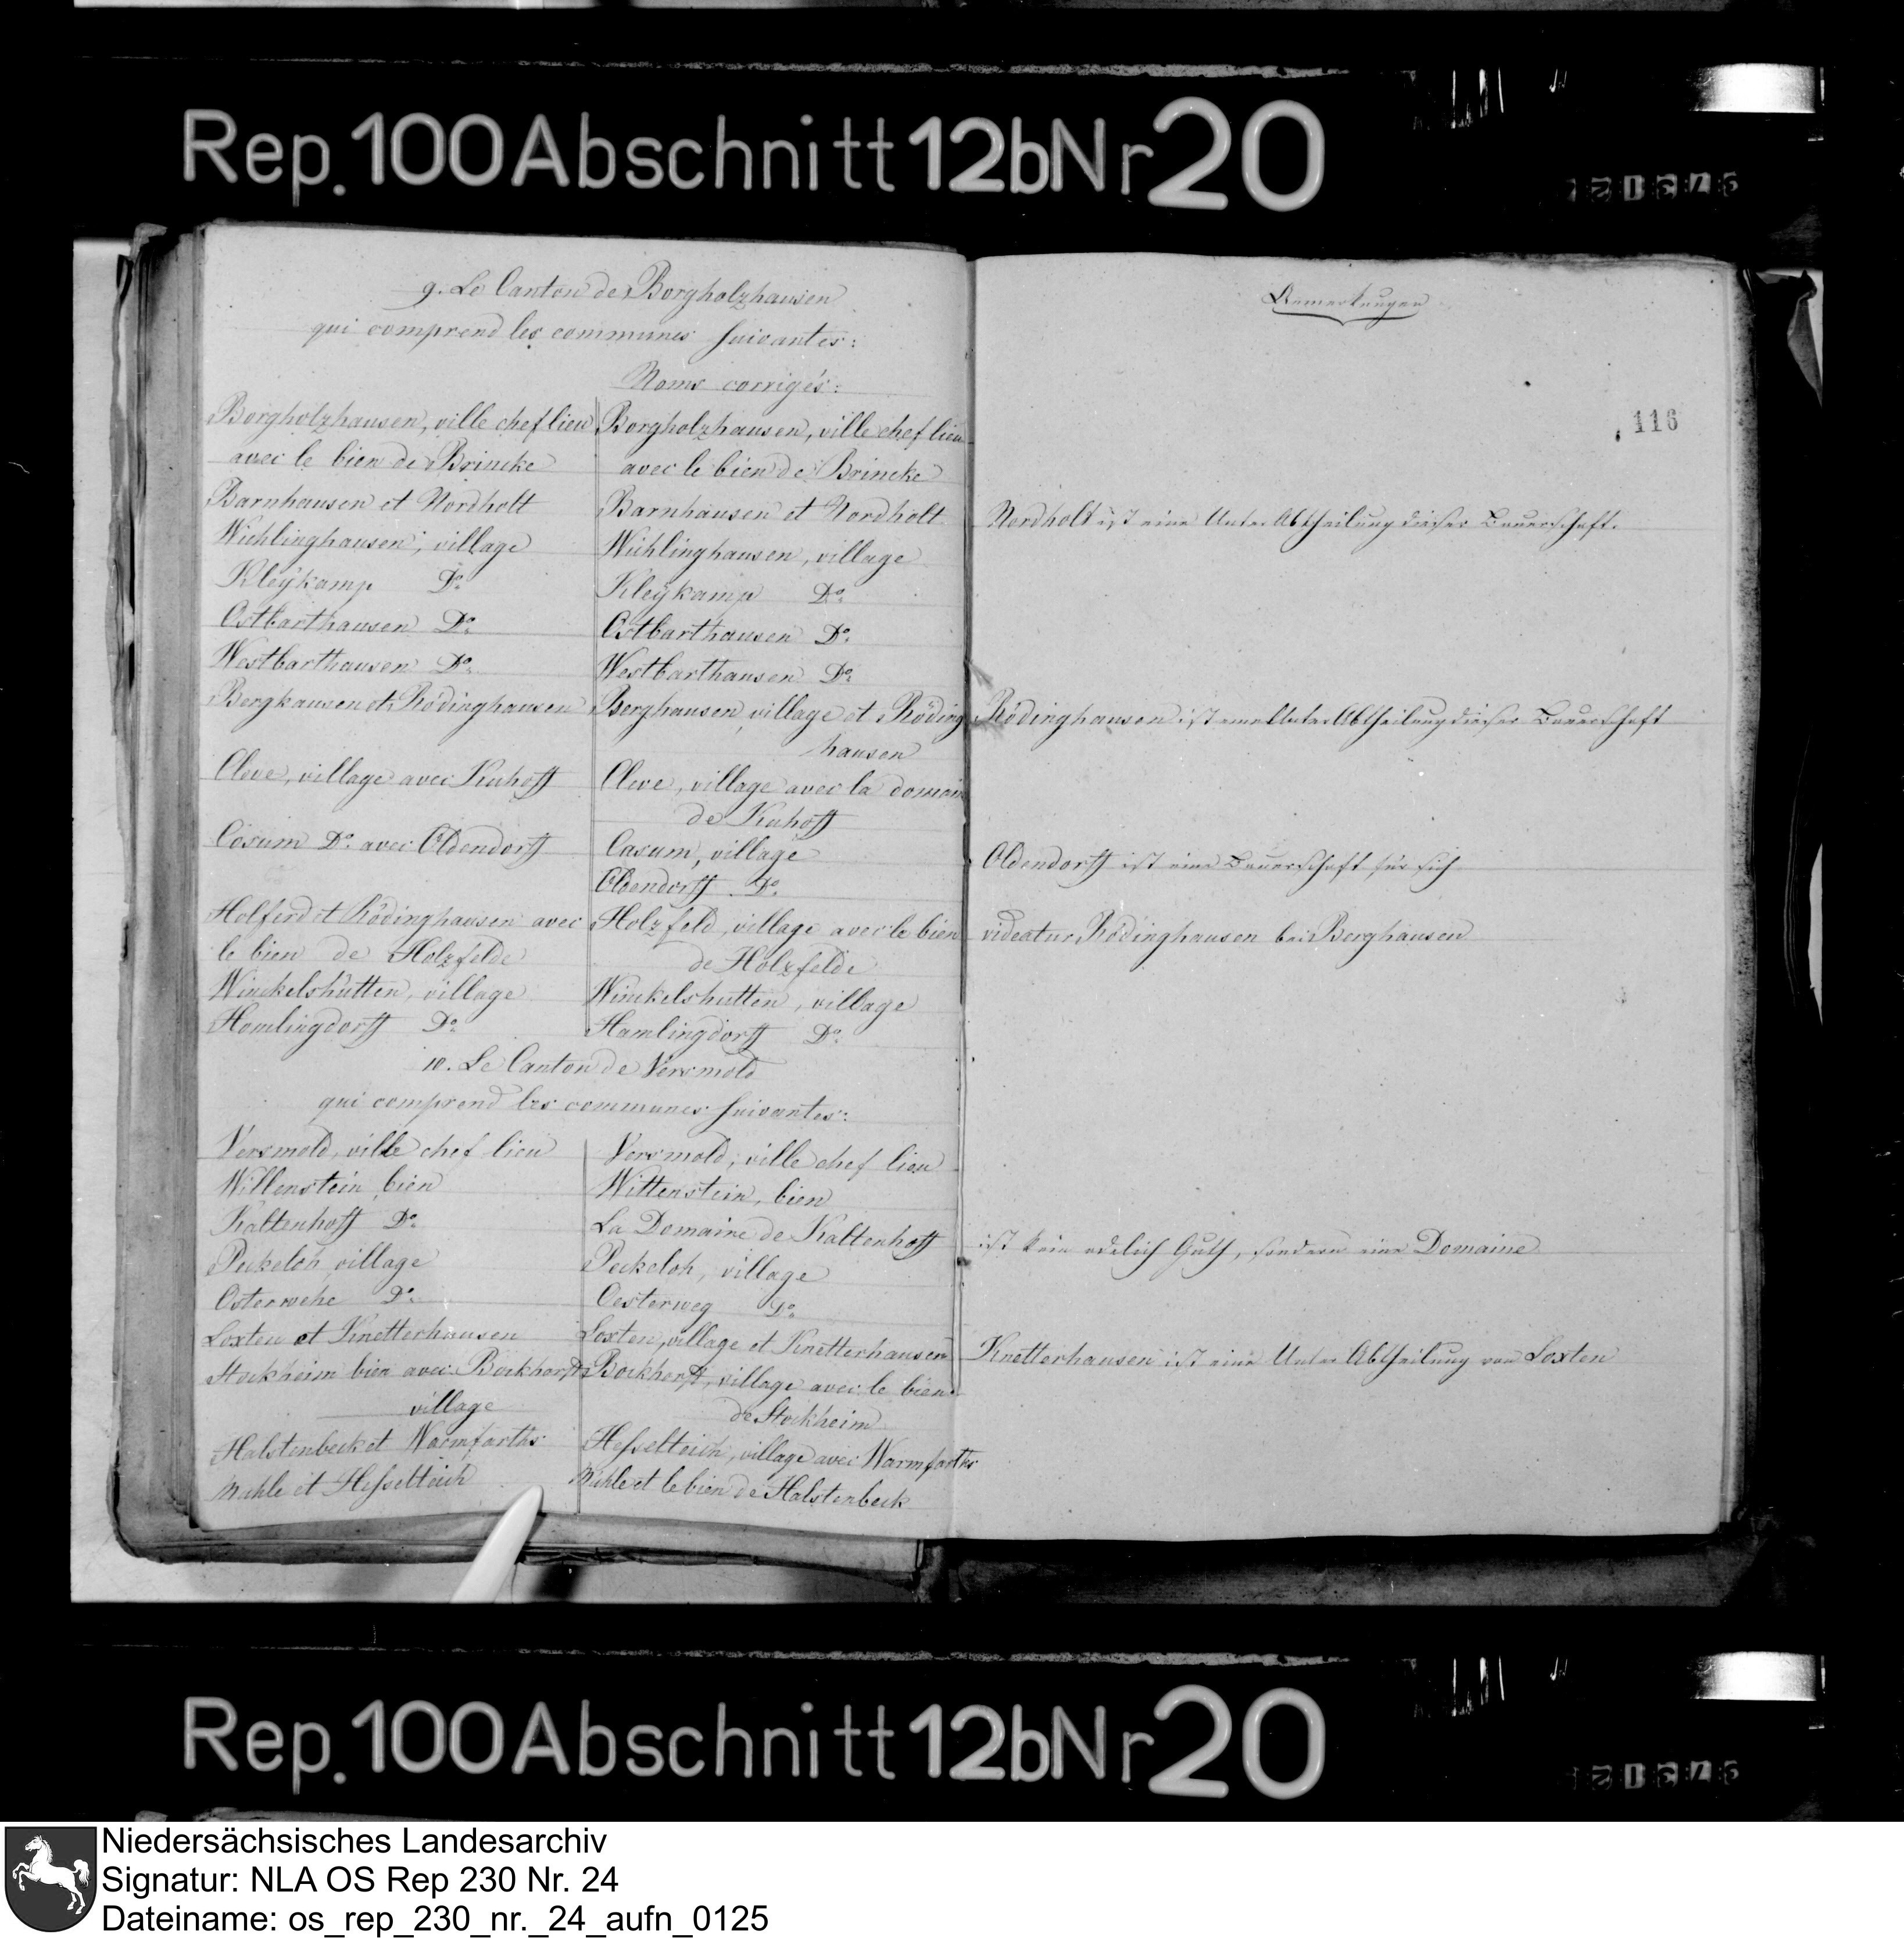 Rep. 100 Abschnitt 12b Nr 20
9. Le Canton de Borgholzhausen
qui comprend les communes suivantes:
Noms corrigés:
Borgholzhausen, ville chef lieu
avec le bien de Brincke
Barnhausen et Nordholt
Wichlinghausen, village
Kleÿkamp Do.
Ostbarthausen Do.
Westbarthausen Do.
Bergkausen et Rödinghausen
Cleve, village avec Kuhoff
Cosum Do. avec Oldendorff
Holferd et Rödinghausen avec
le bien de Holzfelde
Winckelshütten, village
Homlingdorff Do.
Borgholzhausen, ville chef lieu
avec le bien de Brincke
Barnhausen et Nordholt
Wichlinghausen, village
Kleÿkamp Do.
Ostbarthausen Do.
Westbarthausen Do.
Berghausen, village et Röding
hausen
Cleve, village avec la domain
de Kuhoff
Casum, village
Oldendorff Do.
Holzfeld, village avec le bien
de Holzfelde
Winckelshutten, village
Hamlingdorff Do.
10. Le Canton de Versmold
qui comprend les communes suivantes:
Versmold, ville chef lieu
Willenstein, bien
Kaltenhoff Do.
Peckeloh, village
Osterwehe Do.
Loxten et Knetterhausen
Stockheim bien avec Bockhorst
village
Halstenbeck et Warmfarths
Muhle et Hesselteich
Versmold, ville chef lieu
Wittenstein, bien
La Domaine de Kaltenhoff
Peckeloh, village
Oesterweg Do.
Loxten, village et Knetterhausen
Bockhorst, village avec le bien
de Stockheim
Hesselteich, village avec Warmfarths
Muhle et le bien de Halstenbeck
Bemerkungen
116
Nordholt ist eine Unter Abtheilung dieser Bauerschaft.
Rödinghausen ist eine Unter Abtheilung dieser Bauerschaft
Oldendorff ist eine Bauerschaft für sich
videatur Rödinghausen bei Berghausen
ist kein adelich Guth, sondern eine Domaine
Knetterhausen ist eine Unter Abtheilung von Loxten
Rep. 100 Abschnitt 12b Nr 20
Niedersächsisches Landesarchiv
Signatur: NLA OS Rep 230 Nr. 24
Dateiname: os_rep_230_nr._24_aufn_0125